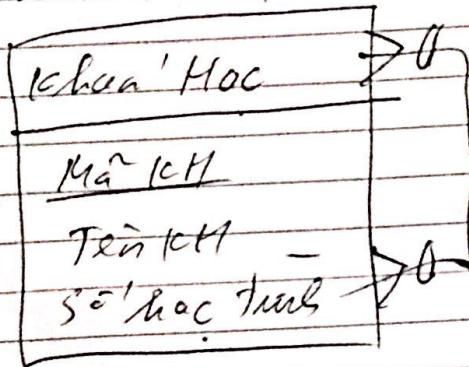 Khoá Học
Mã KH
Tên KH
Số học trình